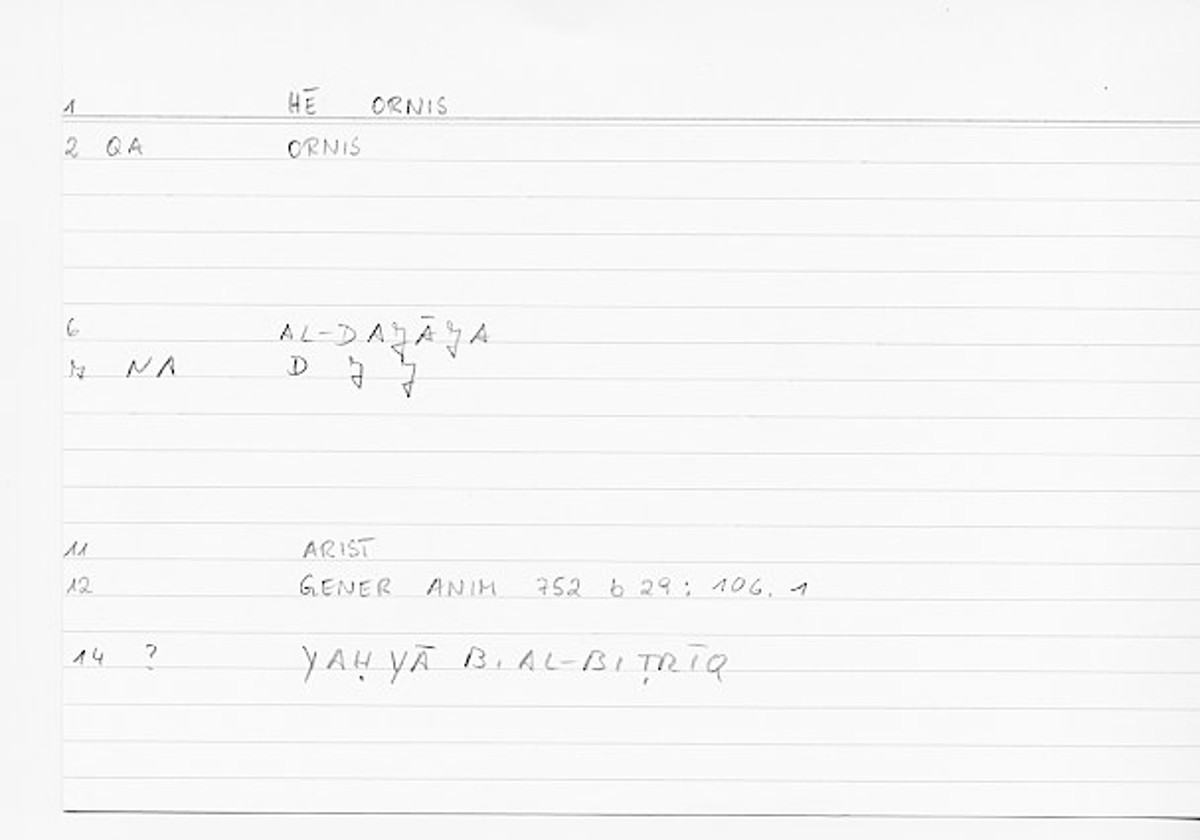 1 HĒ ORNIS
2 QA ORNIS
6 AL-DAJĀJA
7 NA D J J
11 ARIST
12 GENER ANIM 752 b 29: 106. 1
14 ? YAḤYĀ B. AL-BIṬRĪQ